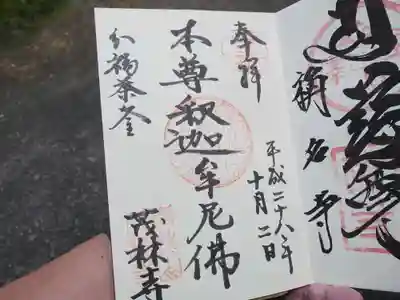 奉拝
平成二十八年
十月二日
本尊釈迦牟尼佛
分福茶釜
茂林寺
称名寺